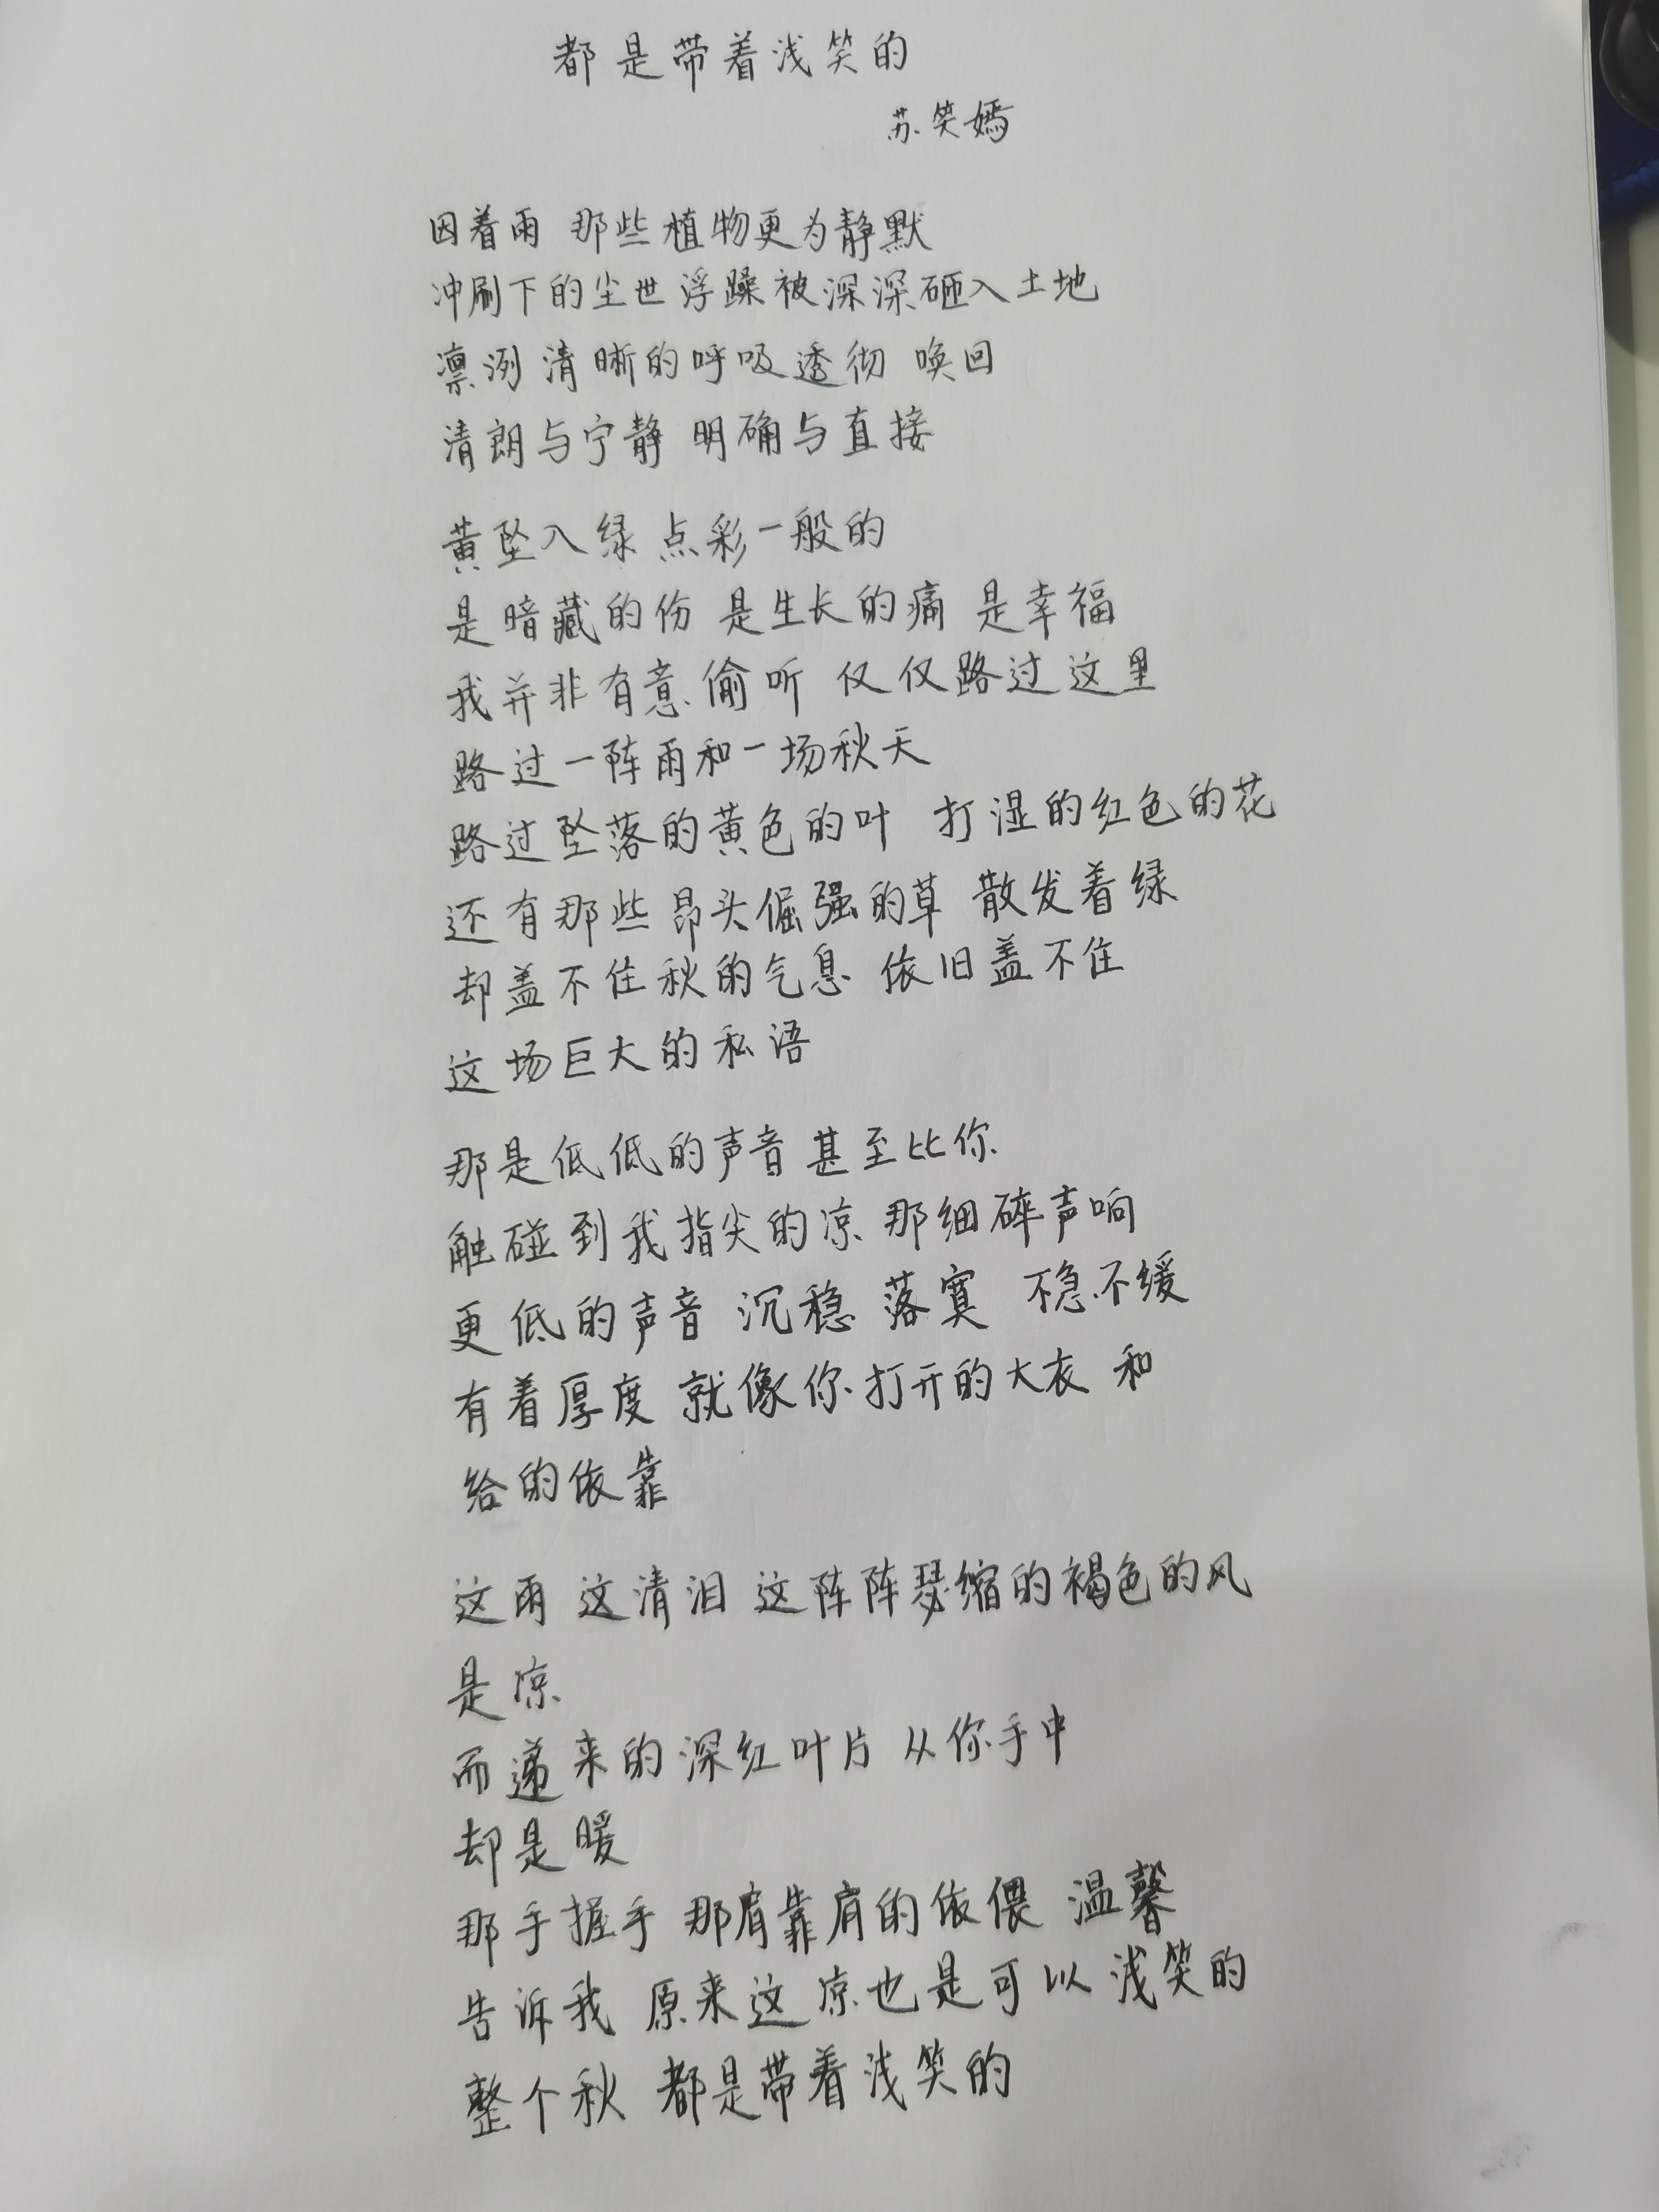 都是带着浅笑的
苏笑嫣
因着雨 那些植物更为静默
冲刷下的尘世浮躁被深深砸入土地
凛冽 清晰的呼吸透彻 唤回
清朗与宁静 明确与直接
黄坠入绿 点彩一般的
是暗藏的伤 是生长的痛 是幸福
我并非有意偷听 仅仅路过这里
路过一阵雨和一场秋天
路过坠落的黄色的叶 打湿的红色的花
还有那些昂头倔强的草 散发着绿
却盖不住秋的气息 依旧盖不住
这场巨大的私语
那是低低的声音 甚至比你
触碰到我指尖的凉 那细碎声响
更低的声音 沉稳 落寞 不急不缓
有着厚度 就像你打开的大衣 和
给的依靠
这雨 这清泪 这阵阵瑟缩的褐色的风
是凉
而递来的深红叶片 从你手中
却是暖
那手握手 那肩靠肩的依偎 温馨
告诉我 原来这凉也是可以浅笑的
整个秋 都是带着浅笑的